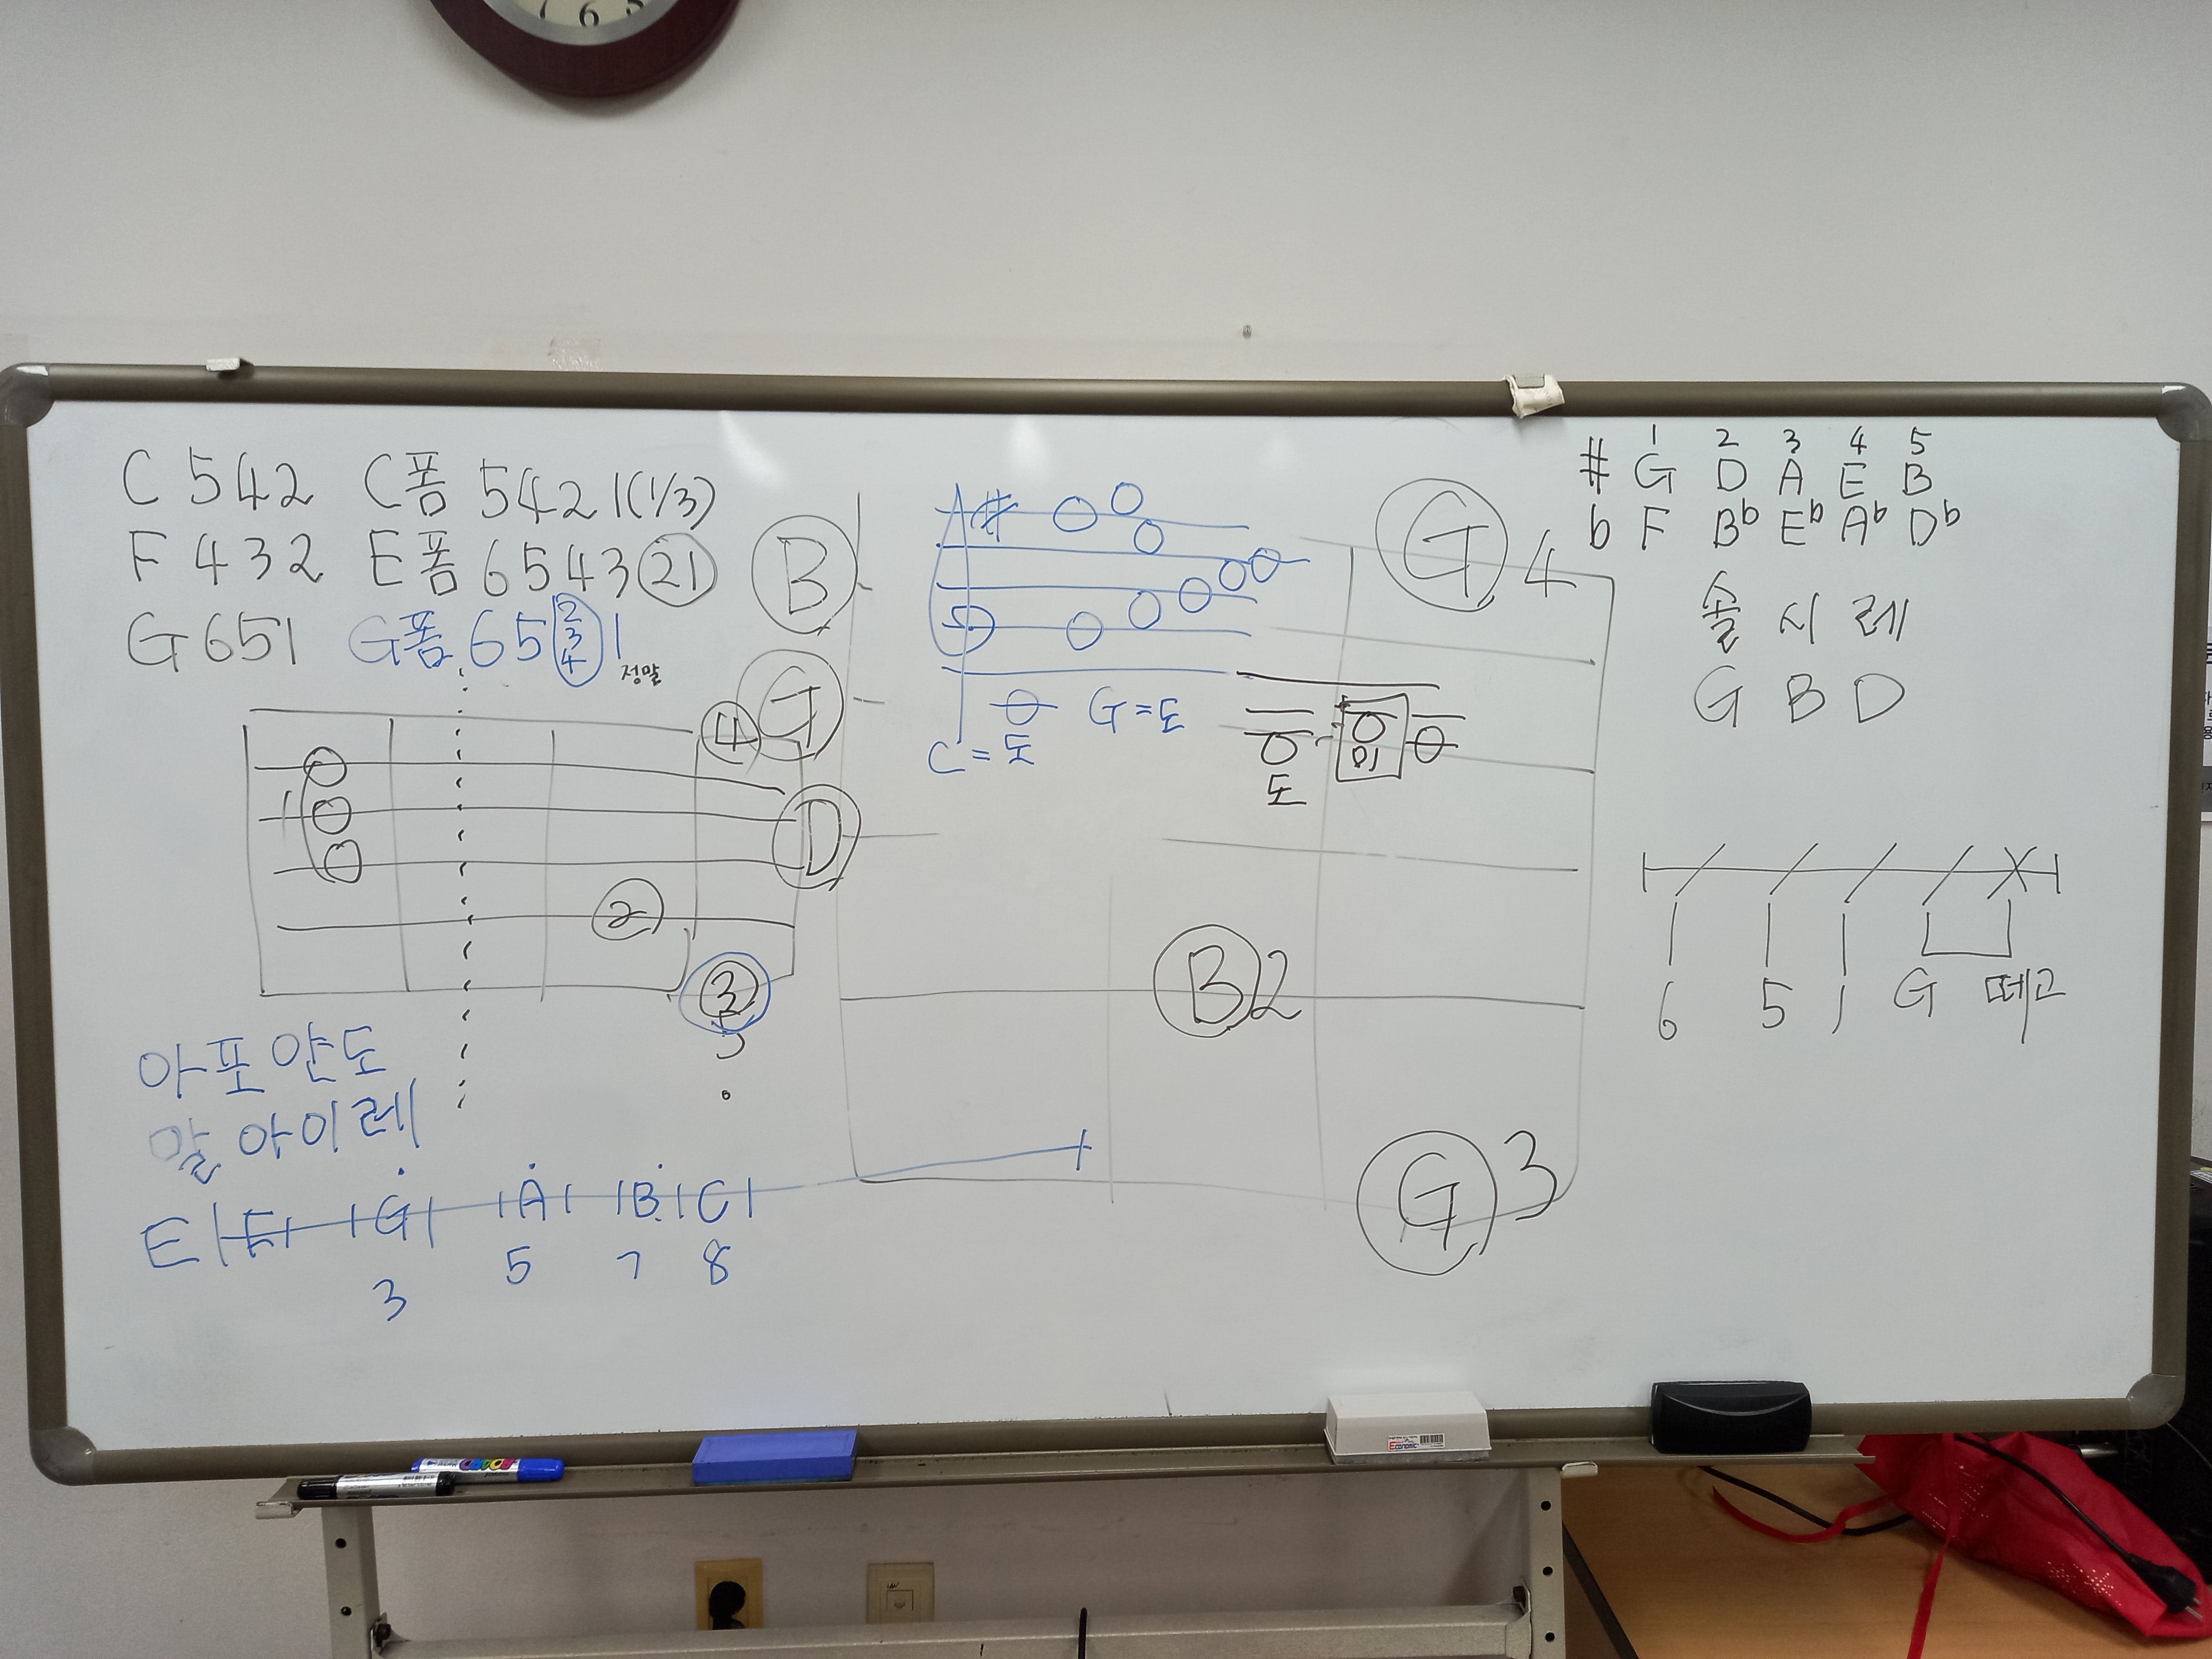 7 6 5
C 542 C폼 5421(1/3)
F 432 E폼 654321
G 651 G폼 65
2
3
4
1
정말
4
1
2
3
아포얀도
알아이레
E F G A B C
3 5 7 8
B
G
D
#
G=도
C=도
도
미
G 4
B 2
G 3
1 2 3 4 5
# G D A E B
b F Bb Eb Ab Db
솔 시 레
G B D
6 5 1 G 떼고
Economic
BOARD